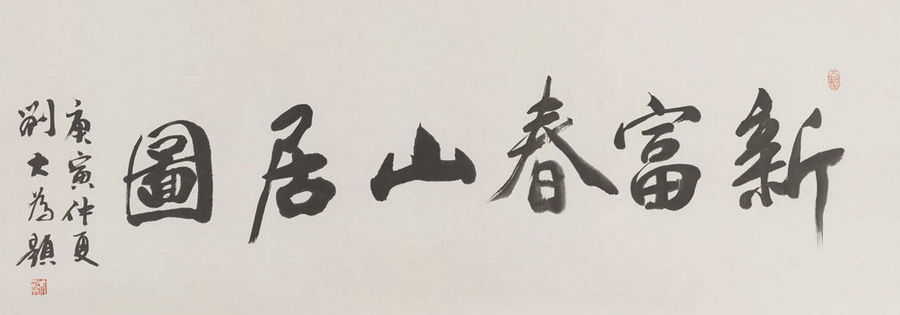 新富春山居圖
庚寅仲夏
劉大為題